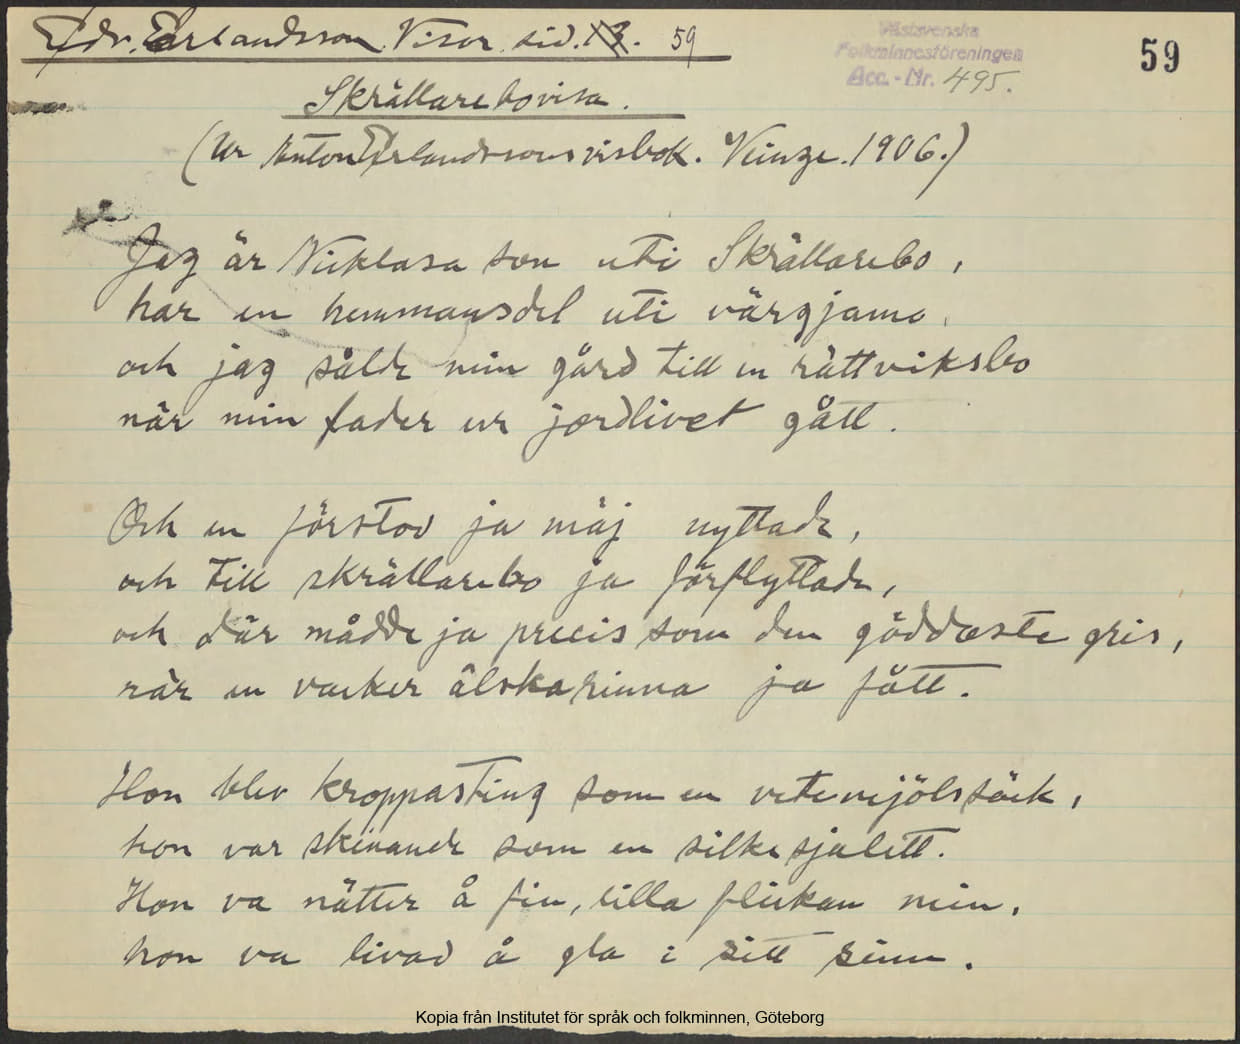 Edv. Erlandsson. Visor. sid. 13. 59
Västsvenska
Folkminnesföreningen
Acc. - Nr. 495.
59
Skrällarebovisa.
(Ur Anton Erlandssons visbok. Vinge. 1906.)
Jag är Nicklasa son uti Skrällarebo,
har en hemmansdel uti värgjamo,
och jag sålde min gård till en rättviksbo
när min fader ur jordlivet gått.
Och en förstov ja mäj nyttade,
och till skrällarebo ja förflyttade,
och där mådde ja precis som den göddaste gris,
när en vacker älskarinna ja fått.
Hon blev kroppasting som en vetemjölssäck,
hon var skinande som en silkesjalett.
Hon va nätter å fin, lilla flickan min,
hon va livad å gla i sitt sinn.
Kopia från Institutet för språk och folkminnen, Göteborg